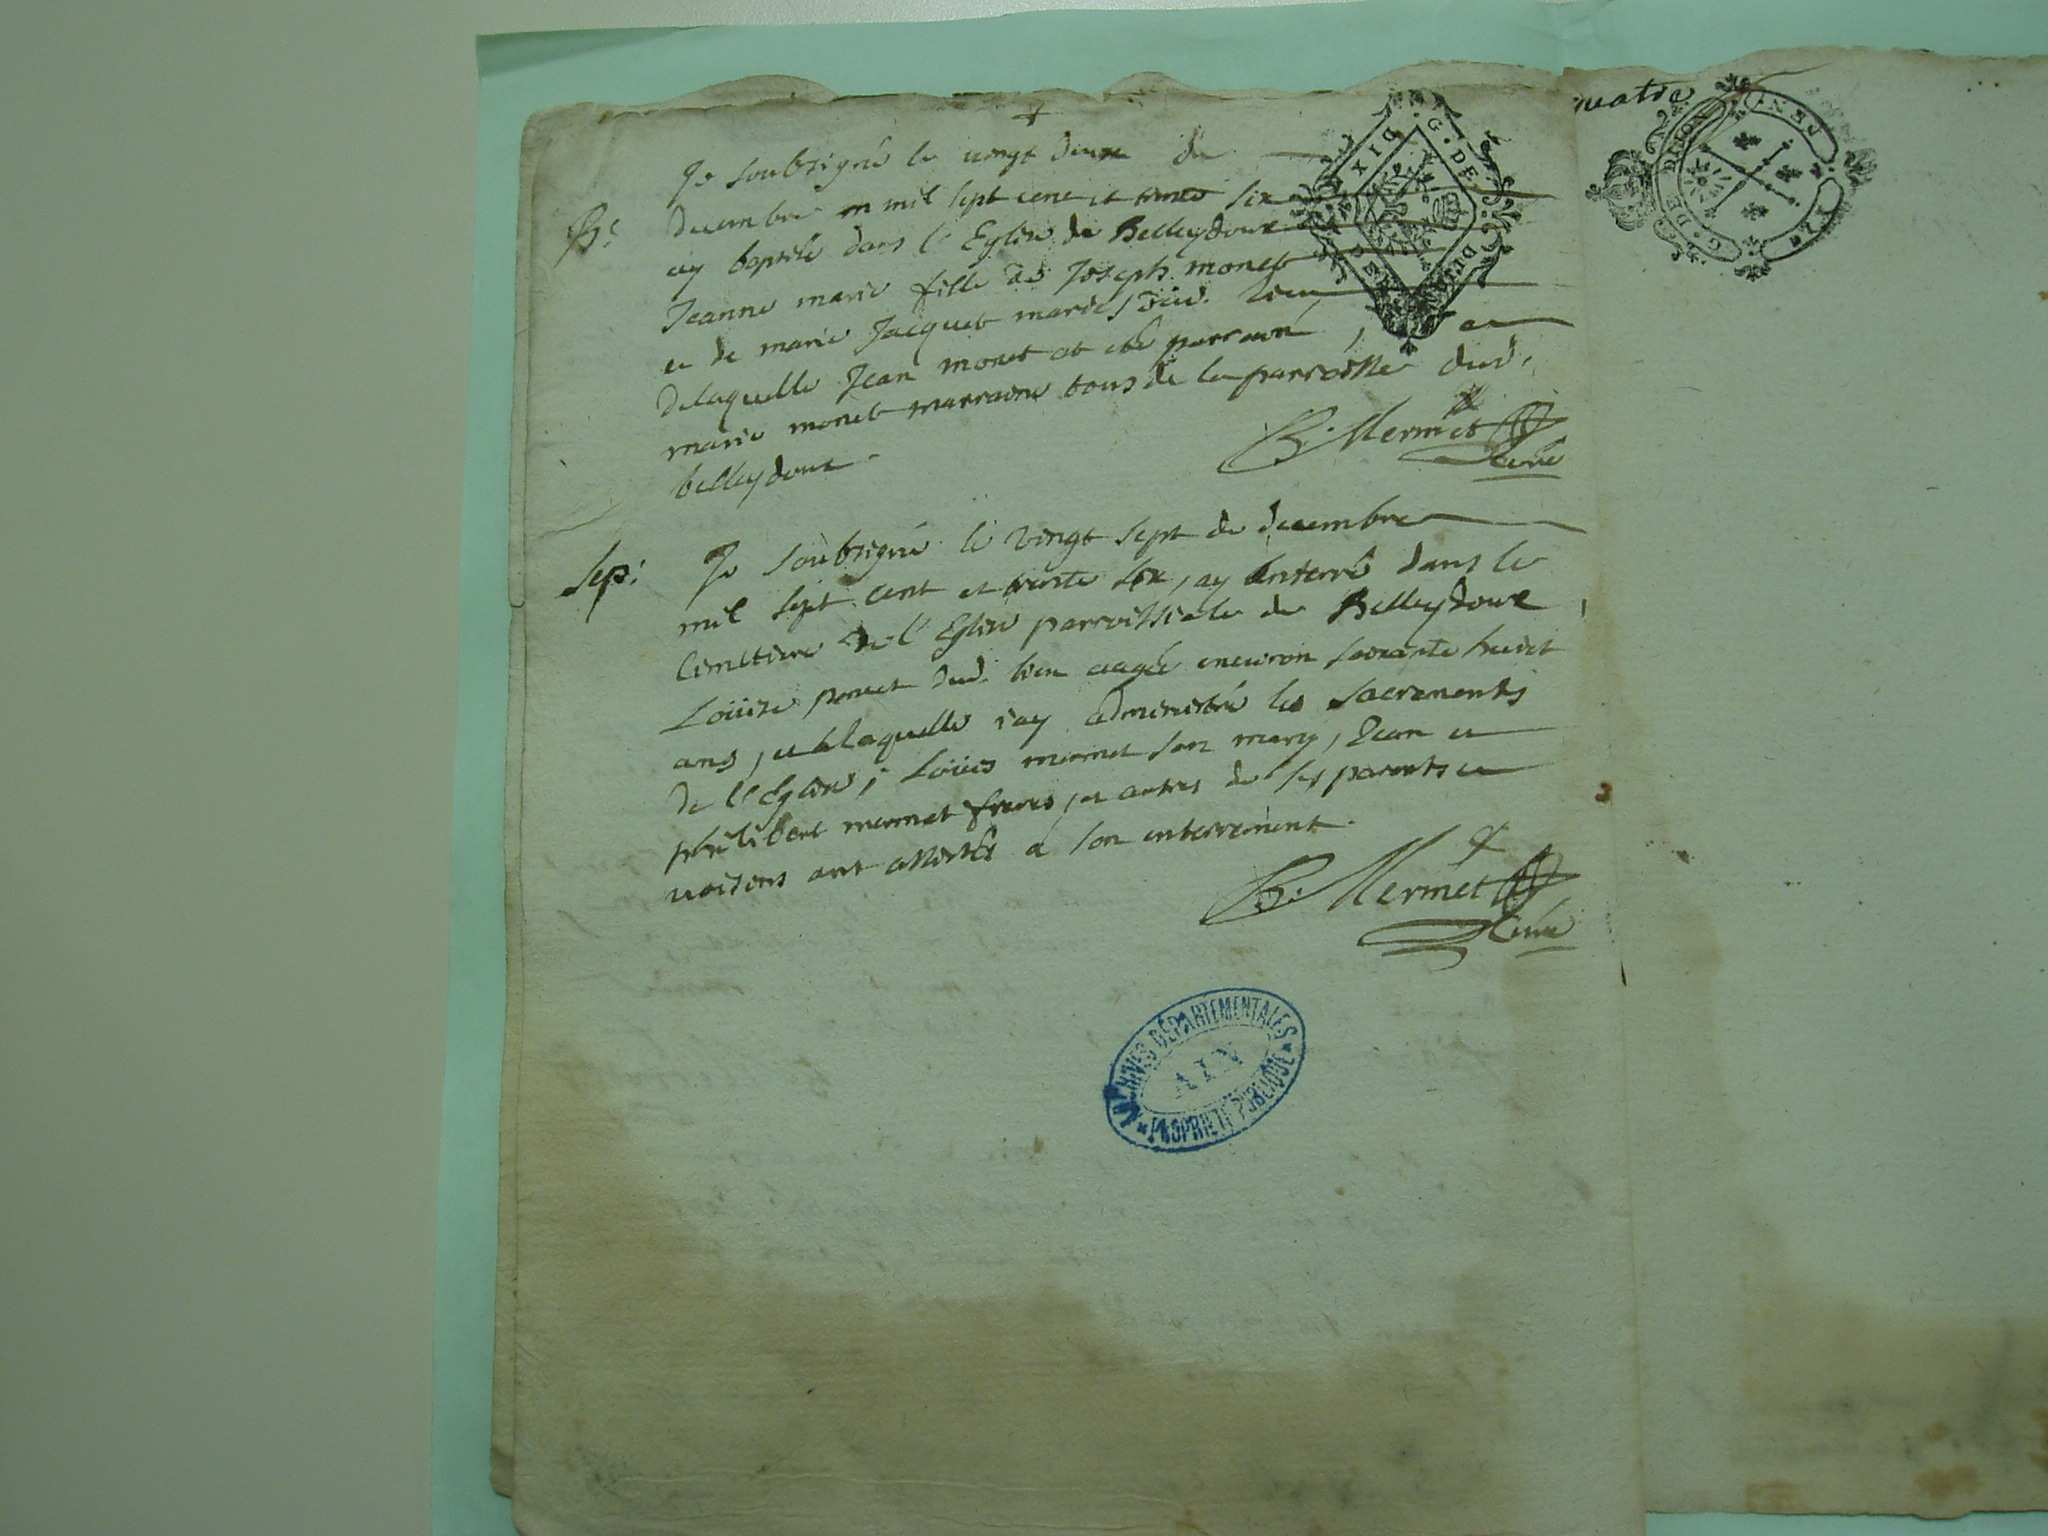 Je soubsigné le vingt deux de
Bt: decembre en mil sept cent et trente six
ay baptisé dans l'Eglise de Belleydoux
Jeanne marie fille de Joseph monet
et de marie Jacquet mariés dud. lieu
delaquelle Jean monet at eté parrain, et
marie monet marraine tous de la parroisse dud.
belleydoux.
B. Mermet
Curé
Sep: Je soubsigné le vingt sept de decembre
mil sept cent et trente six, ay enterré dans le
Cimetiere de l'Eglise parroissiale de Belleydoux,
Loüise dud. lieu aagée environ soixante huict
ans, et a laquelle j'ay administré les sacrements
de l'Eglise; Loüis mermet son mary, Jean et
philibert mermet freres, et autres de ses parents et
voisins ont assistés a son enterrement.
B. Mermet
Curé
G. DE DIJON
DIX D
G. DE DIJON
ARCHIVES DÉPARTEMENTALES
AIN
PROPRIÉTÉ PUBLIQUE